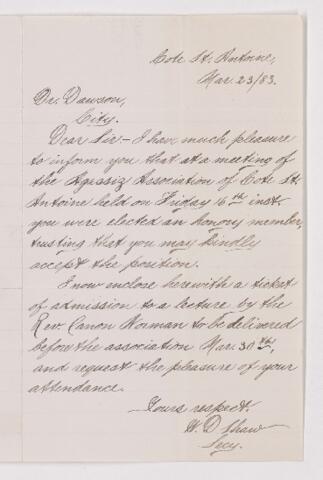 Cote St. Antoine,
Mar. 23/83.
Dr. Dawson,
City.
Dear Sir – I have much pleasure
to inform you that at a meeting of
the Agassiz Association of Cote St.
Antoine held on Friday 16th inst.
you were elected an honory member,
trusting that you may kindly
accept the position.
I now enclose herewith a ticket
of admission to a lecture by the
Rev. Canon Norman to be delivered
before the association Mar. 30th,
and request the pleasure of your
attendance.
Yours respect.
W. D Shaw
Secy.